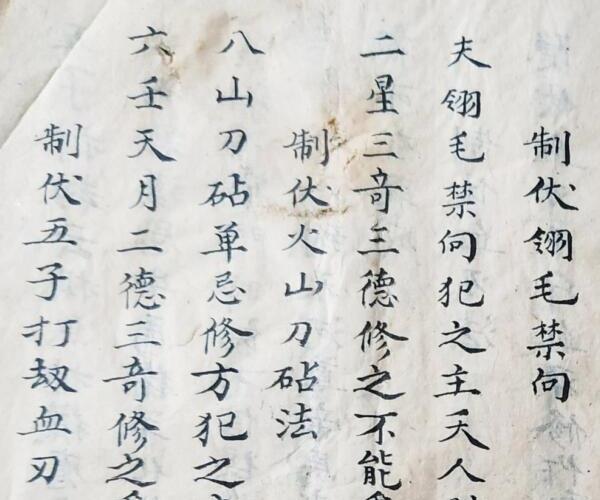 制伏翎毛禁向
夫翎毛禁向犯之主夭人
二星三奇三德修之不能
制伏火山刀砧法
八山刀砧单忌修方犯之
六壬天月二德三奇修之
制伏五子打劫血刃